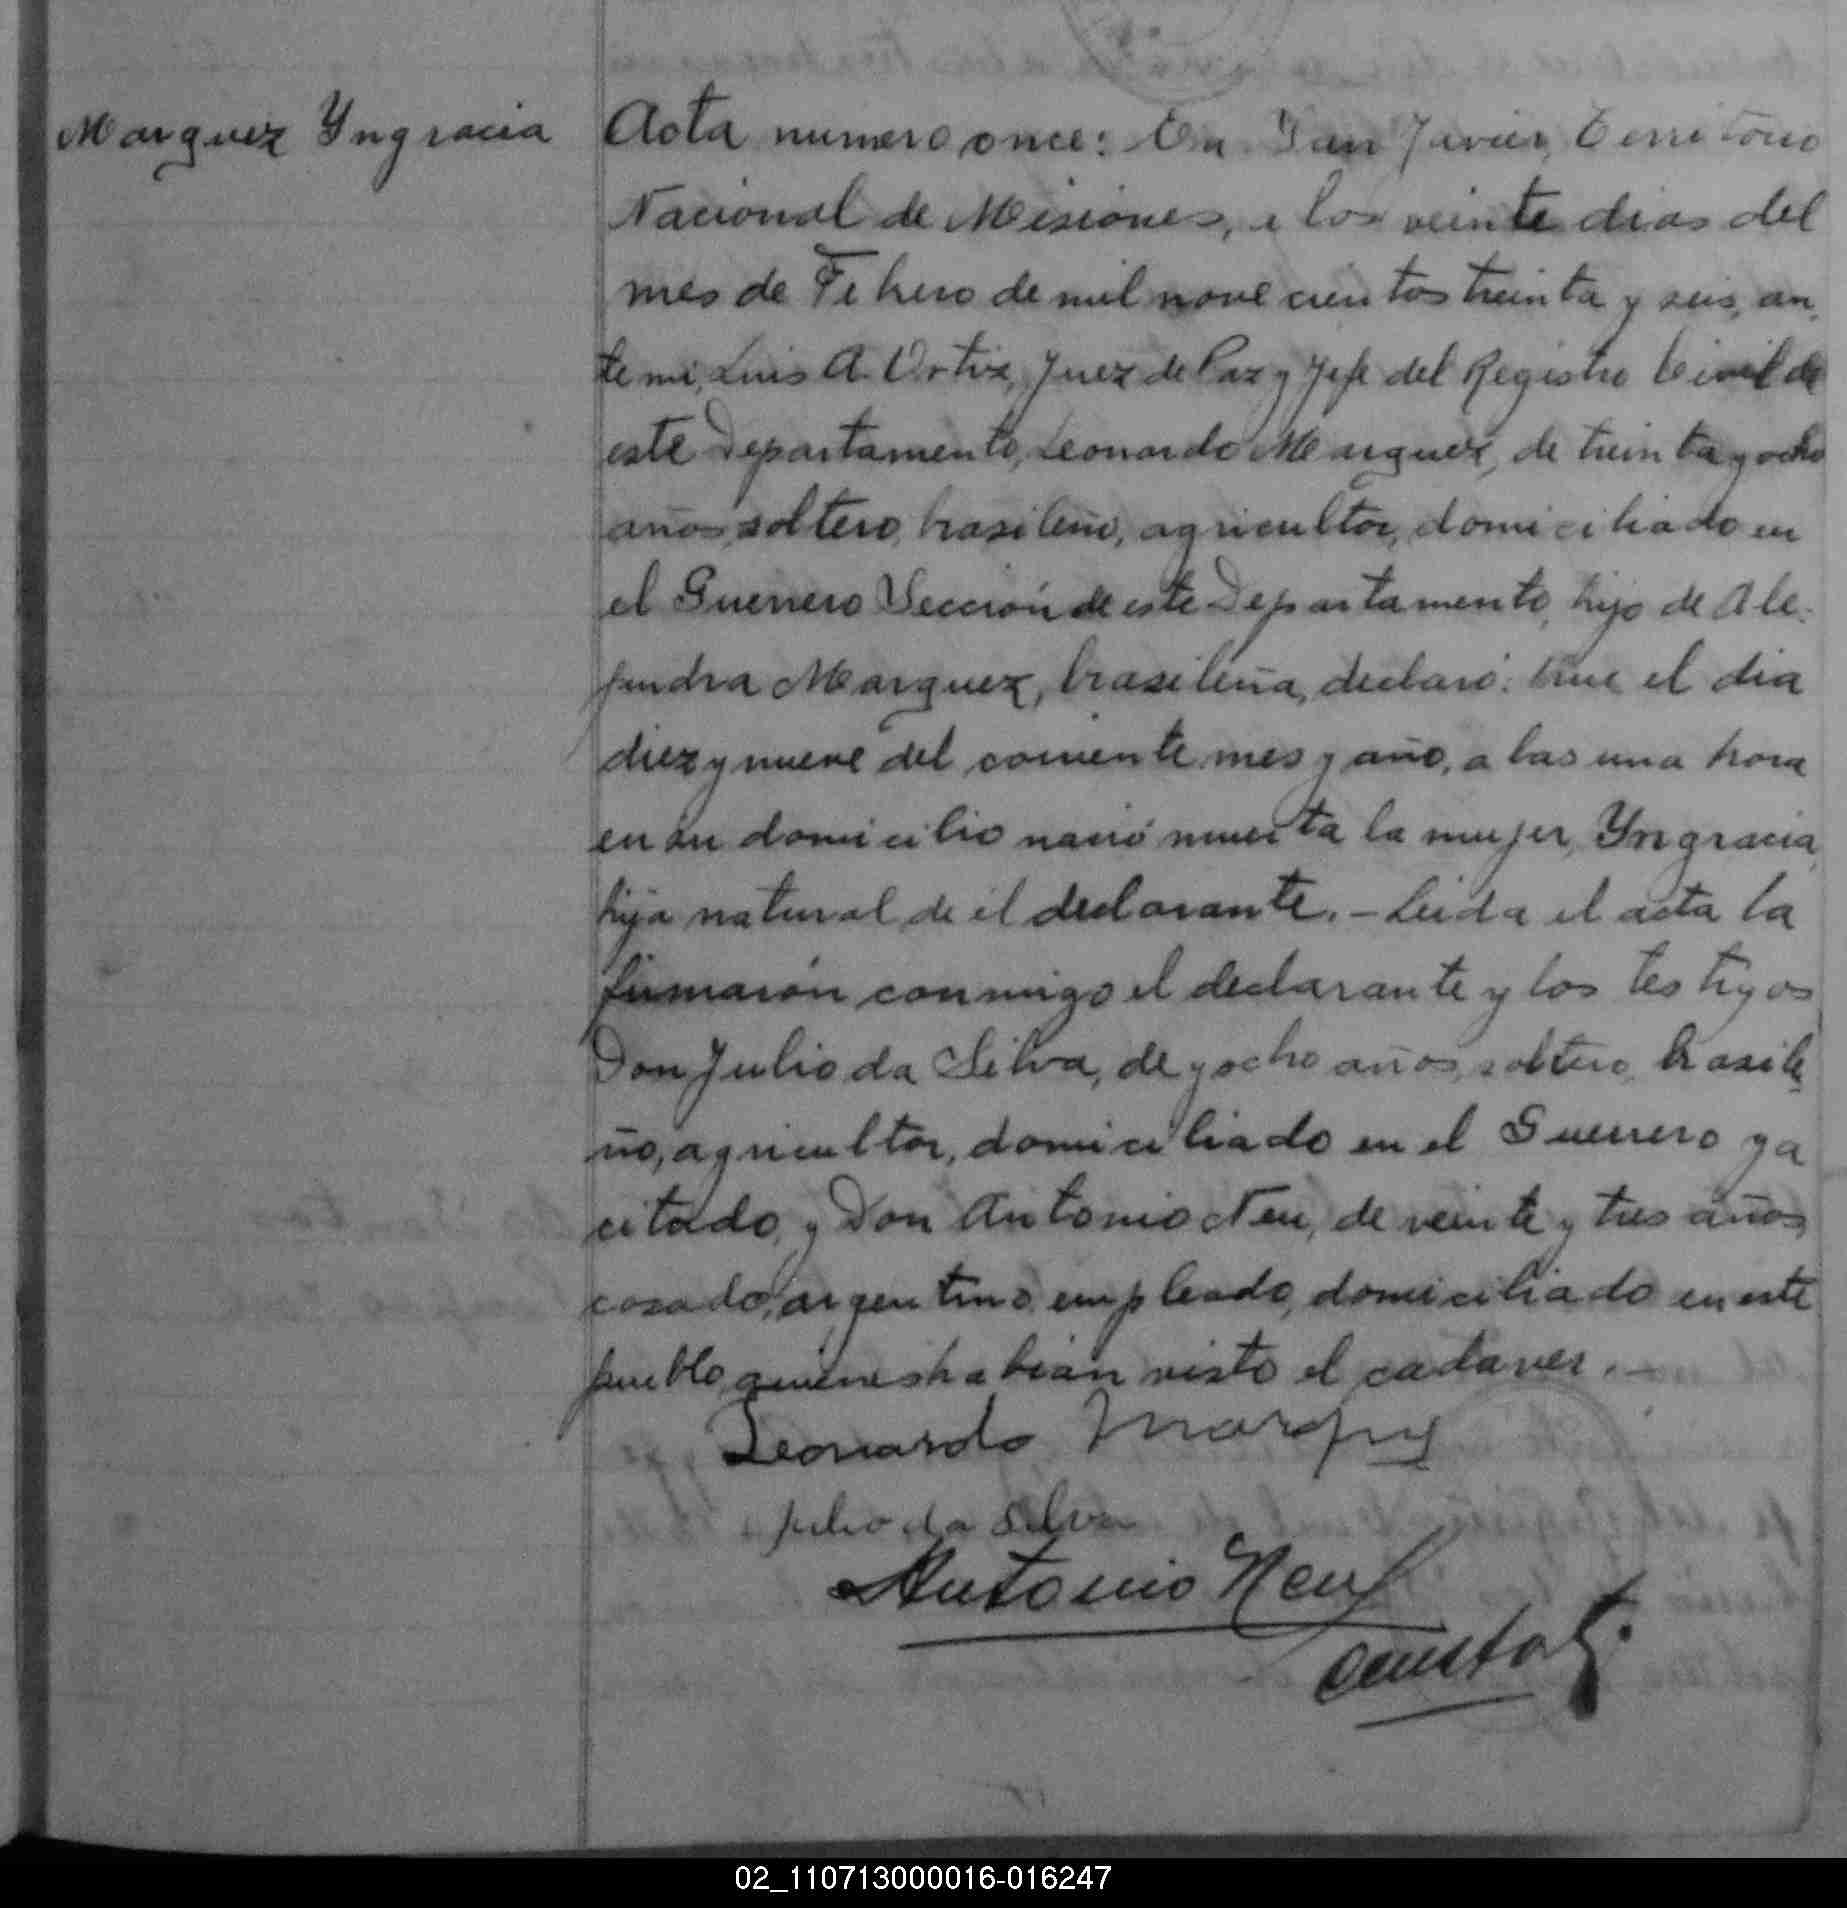 Marquez Yngracia
Acta numero once: En San Javier, Territorio
Nacional de Misiones, a los veinte dias del
mes de Febrero de mil novecientos treinta y seis, an
te mi, Luis A. Ortiz, Juez de Paz y Jefe del Registro Civil de
este Departamento, Leonardo Marquez, de treinta y ocho
años, soltero, brasileño, agricultor, domiciliado en
el Guerrero Sección de este Departamento, hijo de Ale-
jandra Marquez, brasileña, declaró: Que el dia
diez y nueve del corriente mes y año, a las una hora
en su domicilio nació muerta la mujer, Yngracia,
hija natural de el declarante. - Leida el acta la
firmaron conmigo el declarante y los testigos
Don Julio da Silva, de y ocho años, soltero, brasile
ño, agricultor, domiciliado en el Guerrero ya
citado, y Don Antonio Neu, de veinte y tres años,
casado, argentino, empleado, domiciliado en este
pueblo, quienes habian visto el cadaver. -
Leonardo Marquez
Julio da Silva
Antonio Neu
02_110713000016-016247